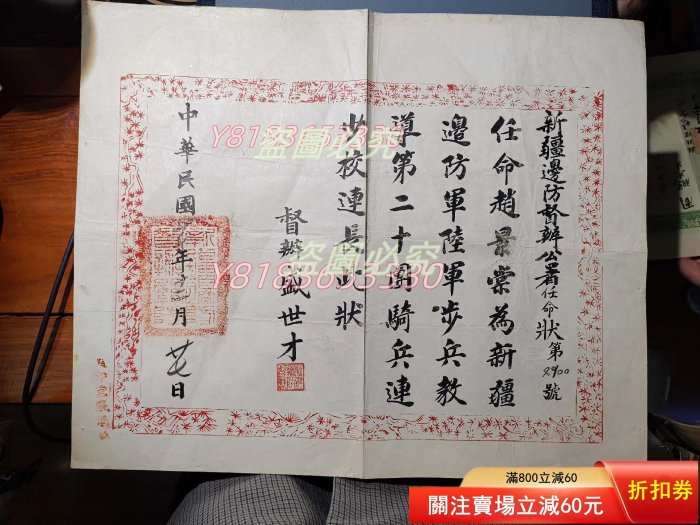 新疆邊防督辦公署任命狀第2900號
任命趙景棠為新疆
邊防軍陸軍步兵教
導第二十團騎兵連
少校連長此狀
督辦盛世才
中華民國年十二月廿七日
盜圖必究
Y8183653330
盜圖必究
Y8183653330
滿800立減60
關注賣場立減60元
折扣券